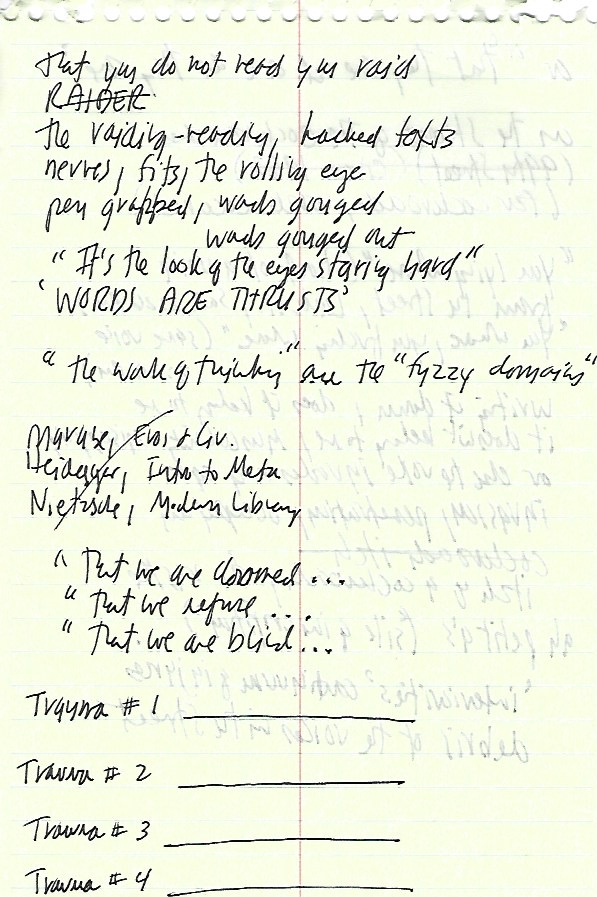 that you do not read you raid
RAIDER
the raiding-reading, hacked texts
nerves, fits, the rolling eye
pen grabbed, words gouged
words gouged out
"It's the look of the eyes staring hard"
'WORDS ARE THRUSTS'
"the work of thinking" are the "fuzzy domains"
Marcuse, Eros & Civ.
Heidegger, Intro to Meta
Nietzsche, Modern Library
"that we are doomed...
"that we refuse....
"that we are blind...
Trauma # 1
Trauma # 2
Trauma # 3
Trauma # 4